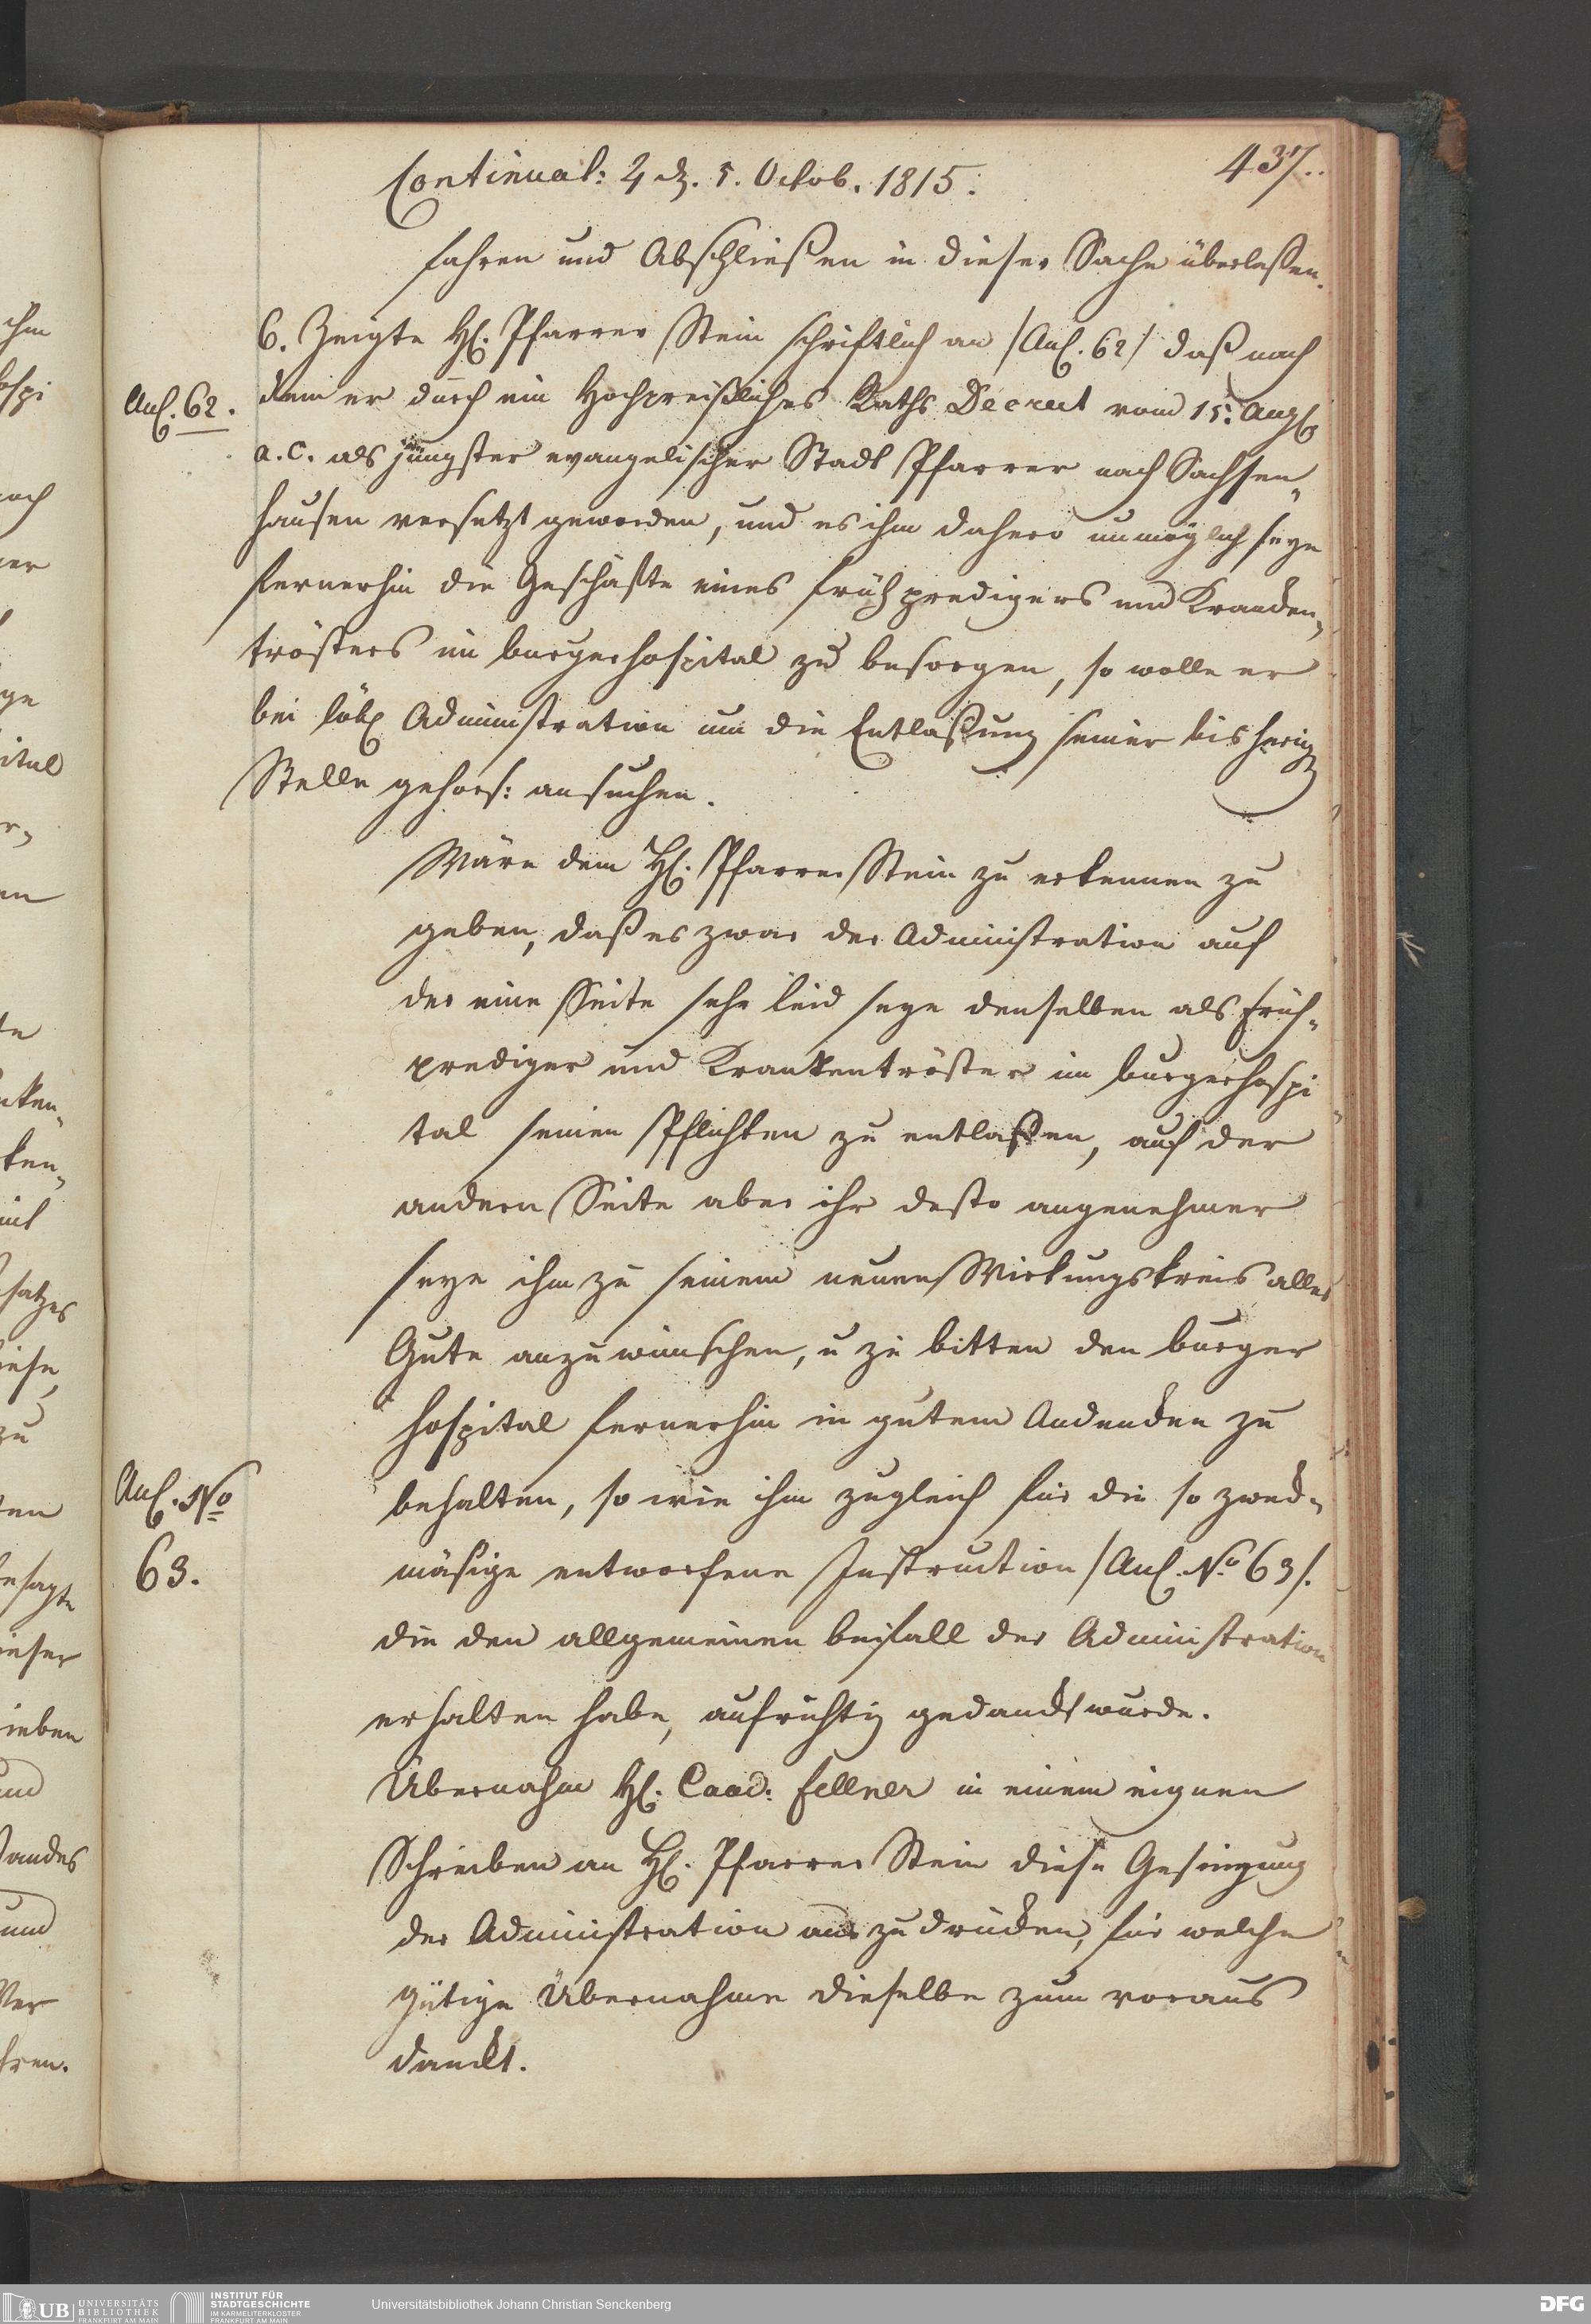 437.
Continuat: 4 d. 5. Octob. 1815.
fahren und Abschließen in dieser Sache überlaßen.
6. Zeigte H. Pfarrer Stein schriftlich an /Anl. 62/ daß nach
Anl. 62.
dem er durch ein Hochpreißliches Raths Decret vom 15. Aug
a. c. als jüngster evangelischer Stadt Pfarrer nach Sachsen-
hausen versetzt geworden, und es ihm dahero unmöglich seye
fernerhin die Geschäfte eines frühpredigers und Krancken-
trösters im burgerhospital zu besorgen, so wolle er
bei löbl Administration um die Entlaßung seiner bisherig
Stelle gehors: ansuchen.
Wäre dem H. Pfarrer Stein zu erkennen zu
geben, daß es zwar der Administration auf
der eine Seite sehr leid seye denselben als Früh-
prediger und Krankentröster im burgerhospi
tal seinen Pflichten zu entlaßen, auf der
andern Seite aber ihr desto angenehmer
seye ihm zu seinem neuen Wirkungskreis alles
Gute anzuwünschen, u zu bitten den burger
hospital fernerhin in gutem Andencken zu
behalten, so wie ihm zugleich für die so zweck-
Anl. No
63.
mäsige entworfene Instruction /Anl. No 63/.
die den allgemeinen beifall der Administration
erhalten habe, aufrichtig gedanckt wurde.
Übernahm H. Fellner in einem eignen
Schreiben an H. Pfarrer Stein diese Gesinnung
der Administration auszudrücken, für welche
gütige Übernahme dieselbe zum voraus
danckt.
UB UNIVERSITÄTS
BIBLIOTHEK
FRANKFURT AM MAIN
INSTITUT FÜR
STADTGESCHICHTE
IM KARMELITERKLOSTER
FRANKFURT AM MAIN
Universitätsbibliothek Johann Christian Senckenberg
DFG